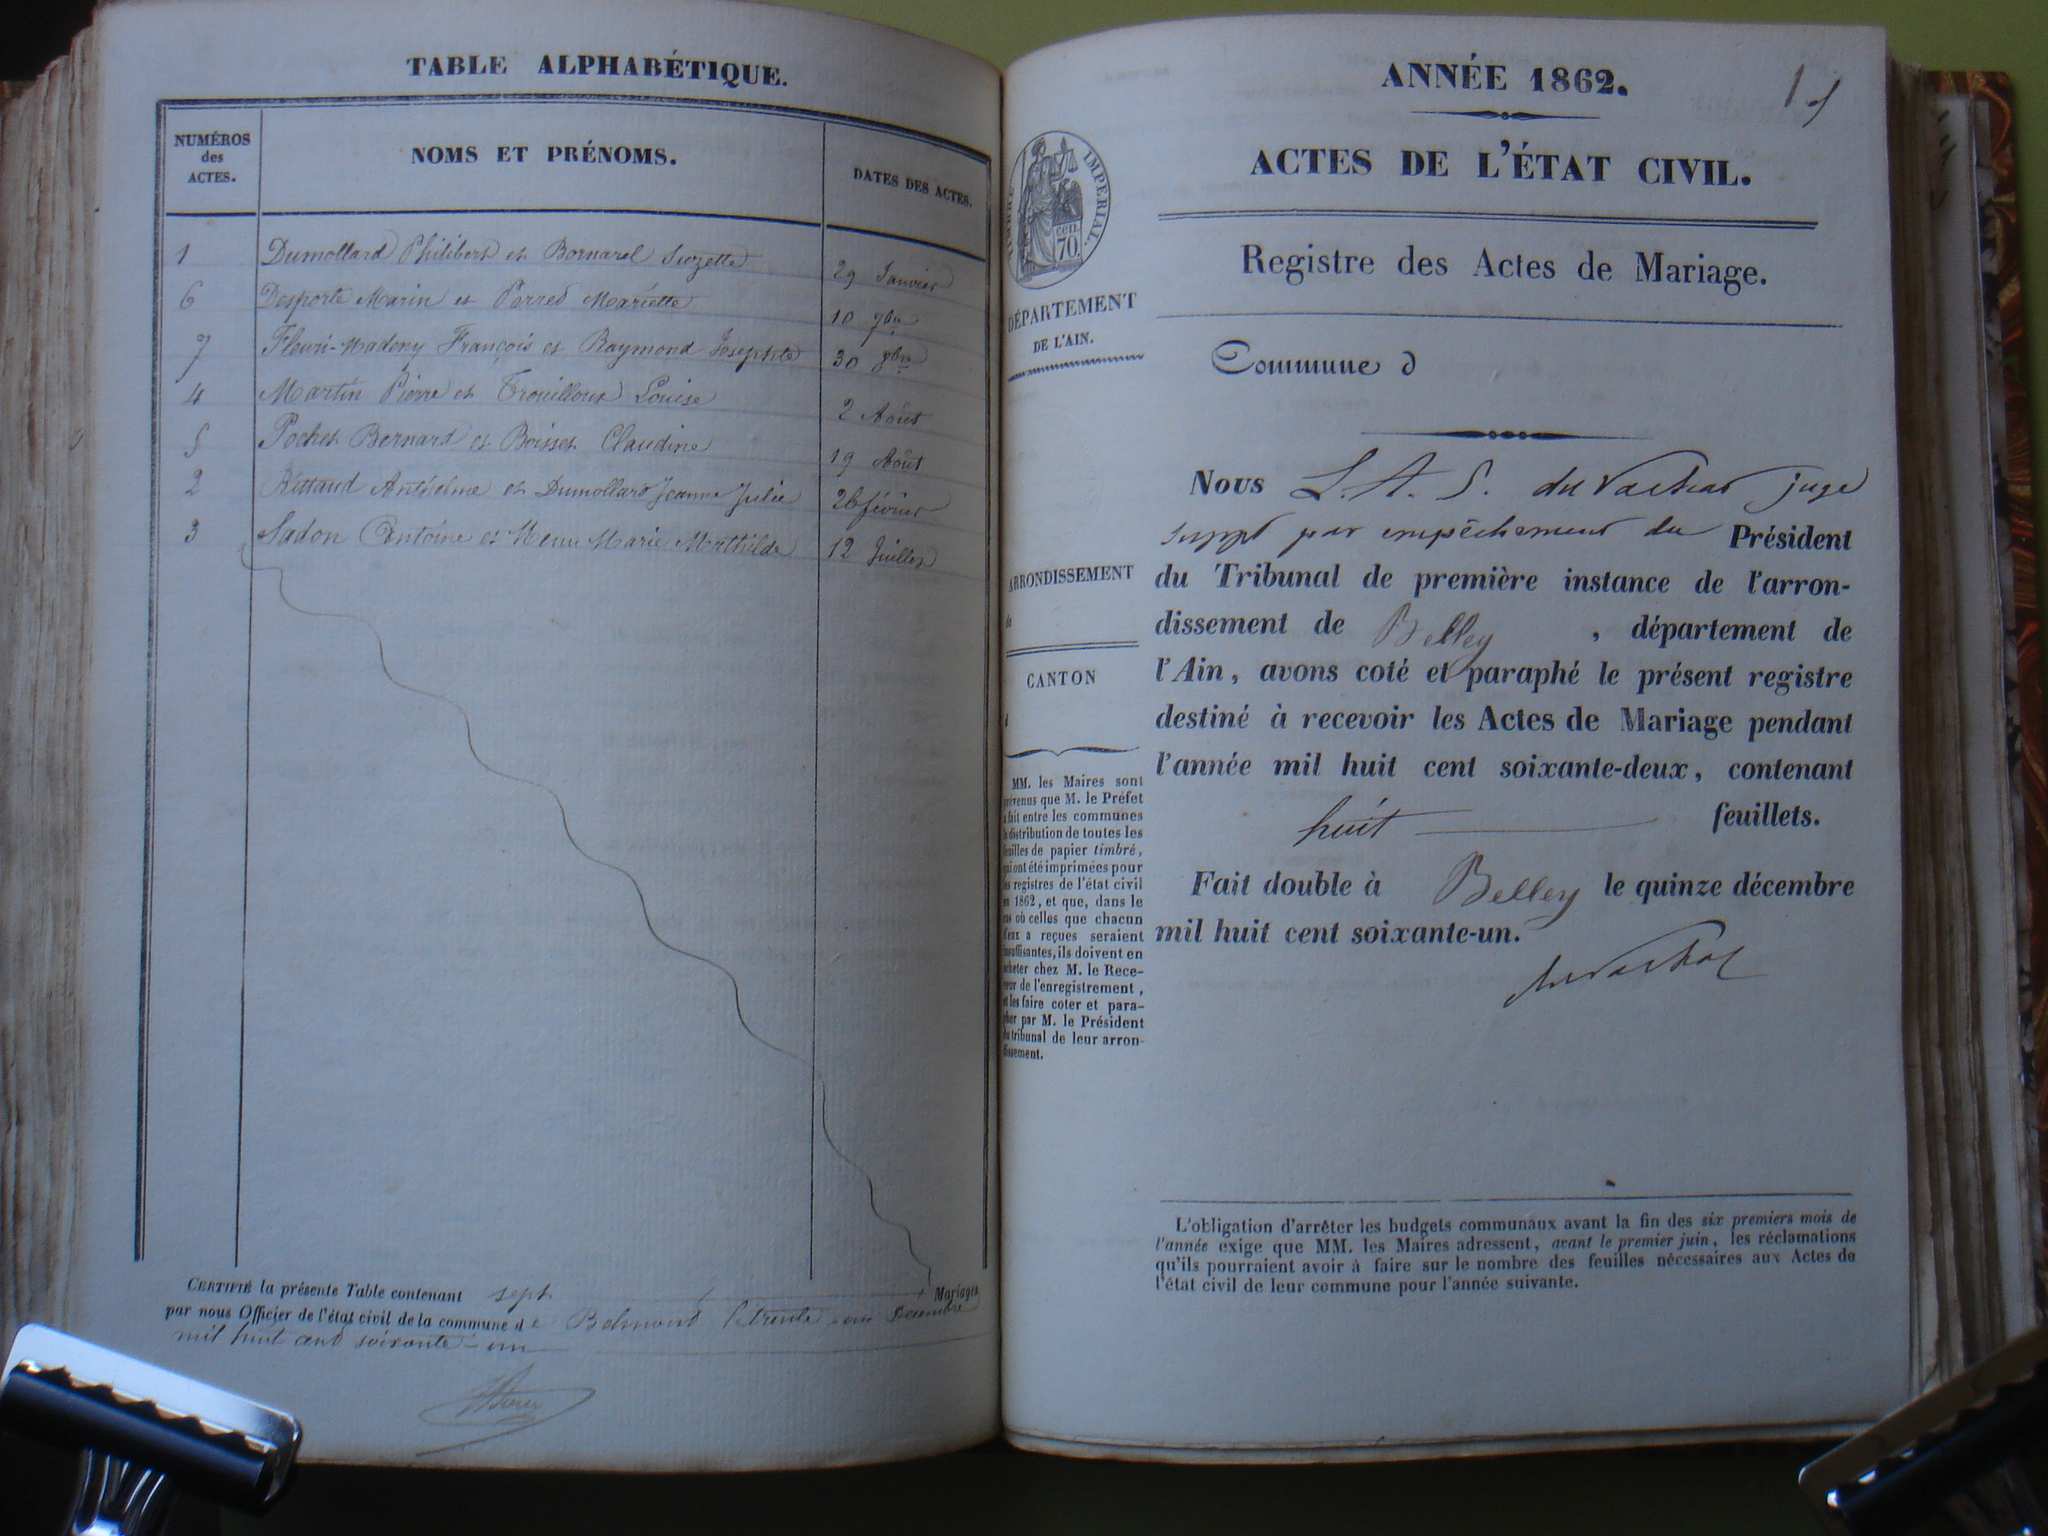 TABLE ALPHABÉTIQUE.
NUMÉROS
des
ACTES.
NOMS ET PRÉNOMS.
DATES DES ACTES.
1 Dumollard Philibert et Bornarel Suzette 29 Janvier
6 Desporte Marin et Mariette 10
7 François et Raymond Josephte 30 8bre
4 Martin Pierre et Louise 2 Août
5 Pochet Bernard et Boisset Claudine 19 Août
2 Rittaud Anthelme et Dumollard Jeanne Julie 26 février
3 Antoine et Marie Mathilde 12 Juillet
CERTIFIÉ la présente Table contenant sept Mariages
par nous Officier de l'état civil de la commune de Belmont le trente-un Décembre
mil huit cent soixante-un
ANNÉE 1862.
1
ACTES DE L'ÉTAT CIVIL.
TIMBRE IMPÉRIAL.
cen.
70.
Registre des Actes de Mariage.
DÉPARTEMENT
DE L'AIN.
Commune d
Nous L. A. S. juge
suppt par empêchement du Président
ARRONDISSEMENT
de
du Tribunal de première instance de l'arron-
dissement de Belley , département de
CANTON
l'Ain, avons coté et paraphé le présent registre
destiné à recevoir les Actes de Mariage pendant
l'année mil huit cent soixante-deux, contenant
huit feuillets.
Fait double à Belley le quinze décembre
mil huit cent soixante-un.
MM. les Maires sont
prévenus que M. le Préfet
a fait entre les communes
la distribution de toutes les
feuilles de papier timbré,
qui ont été imprimées pour
les registres de l'état civil
en 1862, et que, dans le
cas où celles que chacun
d'eux a reçues seraient
insuffisantes, ils doivent en
acheter chez M. le Rece-
veur de l'enregistrement,
et les faire coter et para-
pher par M. le Président
du tribunal de leur arron-
dissement.
L'obligation d'arrêter les budgets communaux avant la fin des six premiers mois de
l'année exige que MM. les Maires adressent, avant le premier juin, les réclamations
qu'ils pourraient avoir à faire sur le nombre des feuilles nécessaires aux Actes de
l'état civil de leur commune pour l'année suivante.